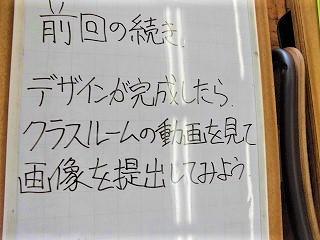 前回の続き.
デザインが完成したら.
クラスルームの動画を見て
画像を提出してみよう.